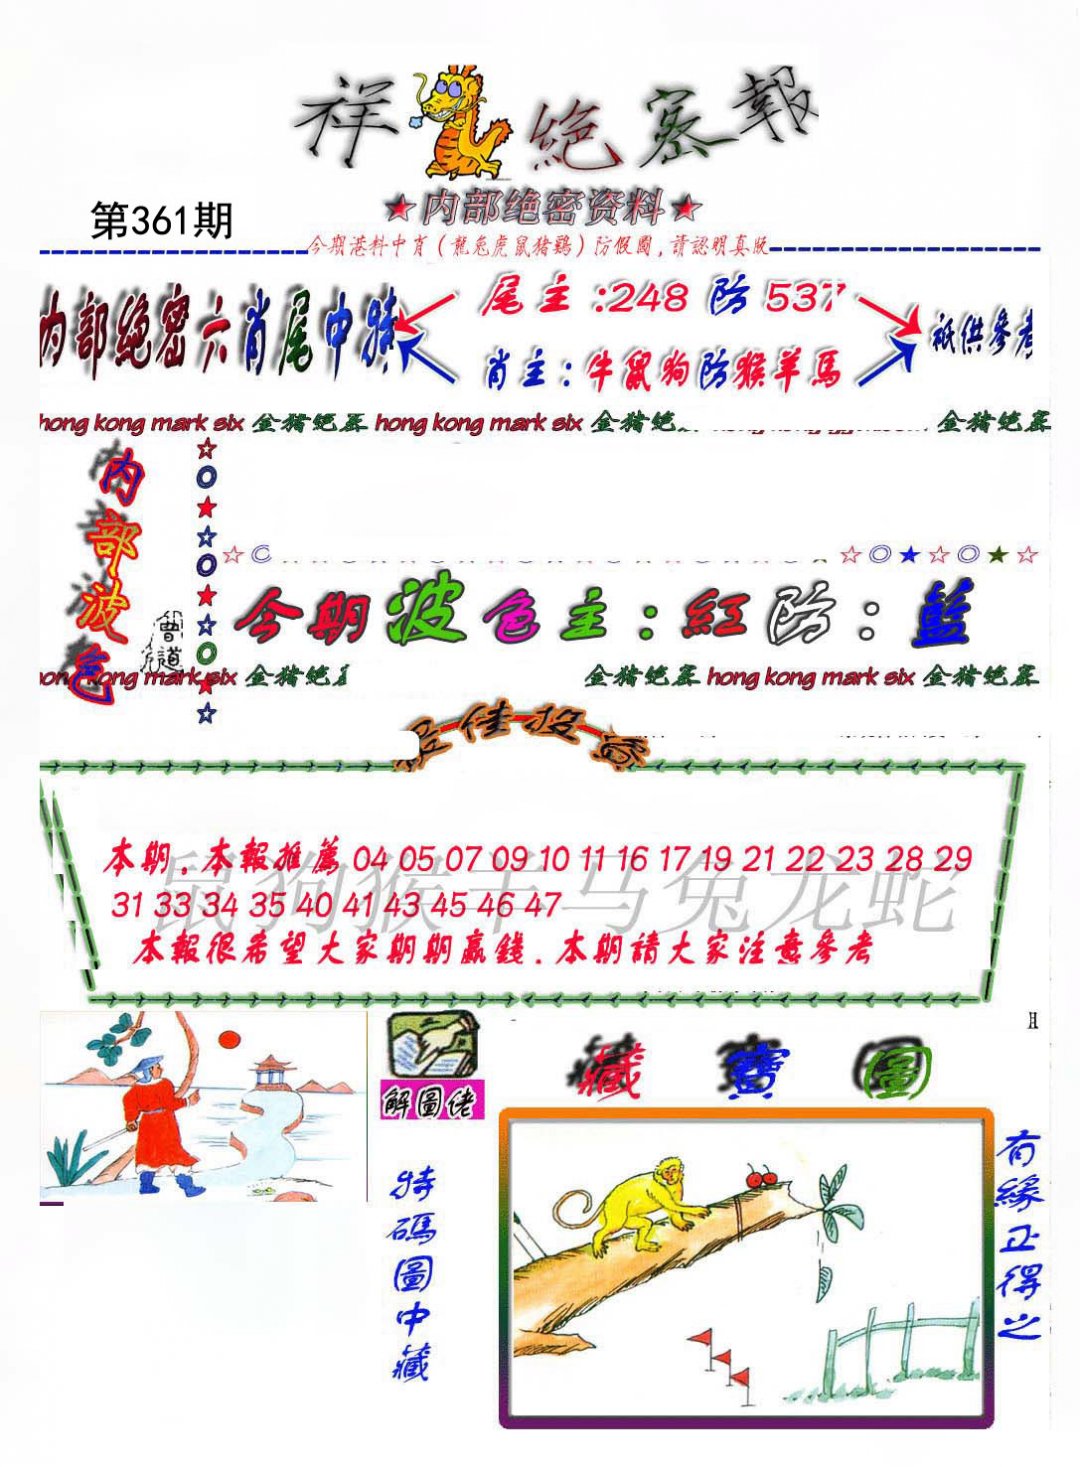 祥 絕密報
★内部绝密资料★
第361期
今期港料中肖（龍兔虎鼠猪鷄）防假圖，請認明真版
内部绝密六肖尾中特
尾主:248防537
肖主:牛鼠狗防猴羊馬
祇供參考
hong kong mark six 金猪绝密 hong kong mark six 金猪绝密
金猪绝密
内部波色
曾道
今期波色主:紅防:藍
hong kong mark six 金猪绝密
金猪绝密 hong kong mark six 金猪绝密
佳投
鼠狗猴羊马兔龙蛇
本期.本報推薦 04 05 07 09 10 11 16 17 19 21 22 23 28 29
31 33 34 35 40 41 43 45 46 47
本報很希望大家期期贏錢.本期請大家注意參考
解圖佬
特碼圖中藏
藏寶圖
有緣正得之